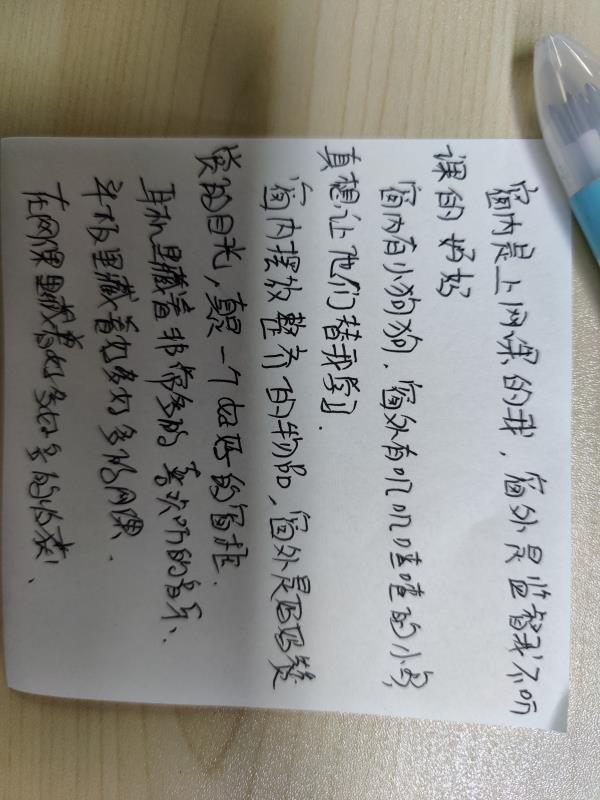 窗内是上网课的我，窗外是监督我不听
课的妈妈
窗内有小狗狗，窗外有叽叽喳喳的小鸟，
真想让他们替我学习.
窗内摆放整齐的物品，窗外是妈妈赞
赏的目光，真是一个妈妈的窗框.
耳机里藏着非常多的喜欢听的音乐、
平板里藏着好多好多的网课.
在网课里藏着好多好多的收获.